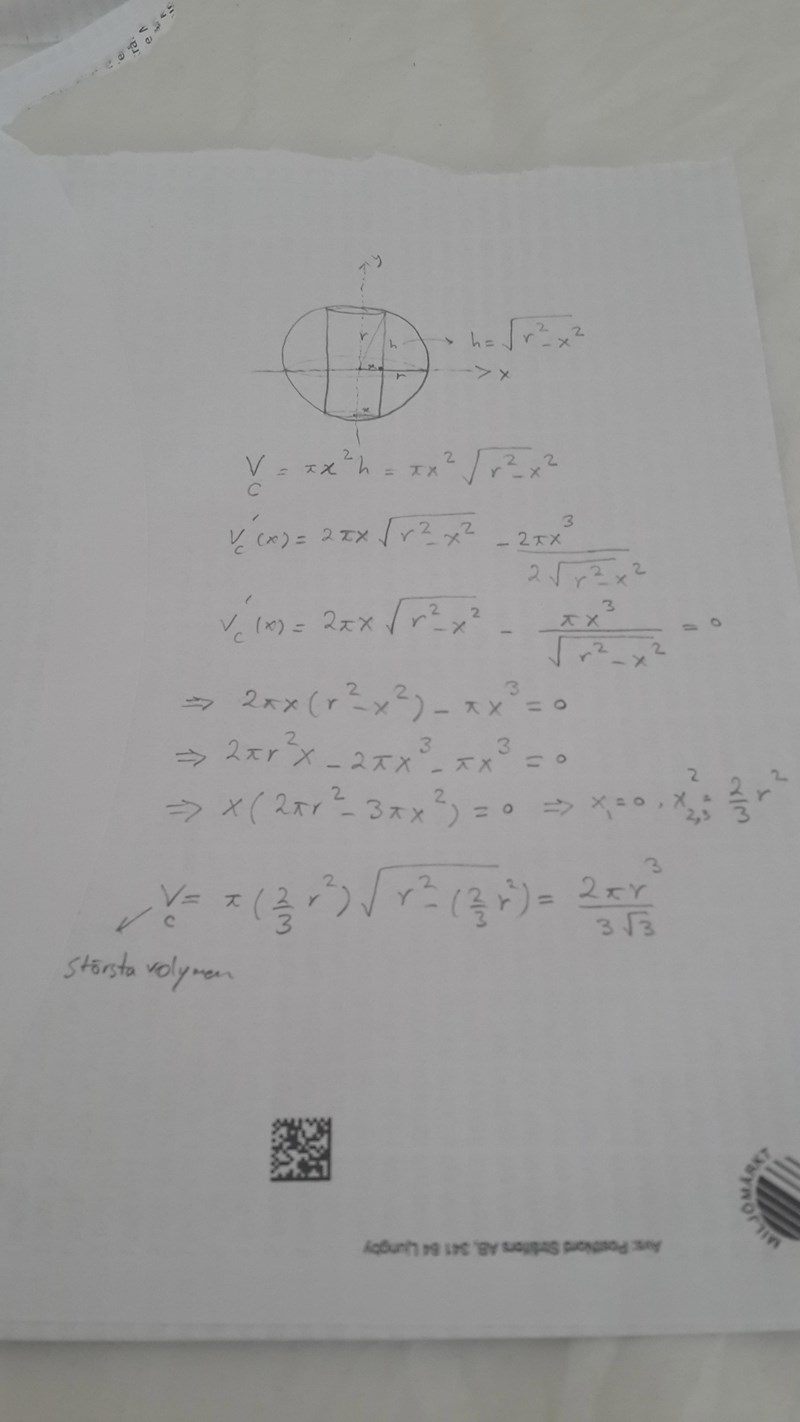 y
r h h = √(r² - x²)
x r x
x
V_c = πx²h = πx²√(r² - x²)
V_c'(x) = 2πx√(r² - x²) - 2πx³ / 2√(r² - x²)
V_c'(x) = 2πx√(r² - x²) - πx³ / √(r² - x²) = 0
⇒ 2πx(r² - x²) - πx³ = 0
⇒ 2πr²x - 2πx³ - πx³ = 0
⇒ x(2πr² - 3πx²) = 0 ⇒ x₁ = 0, x²₂,₃ = 2/3 r²
V_c = π(2/3 r²)√(r² - (2/3 r²)) = 2πr³ / 3√3
Största volymen
MILJÖMÄRKT
Avs: PostNord Strålfors AB, 341 84 Ljungby